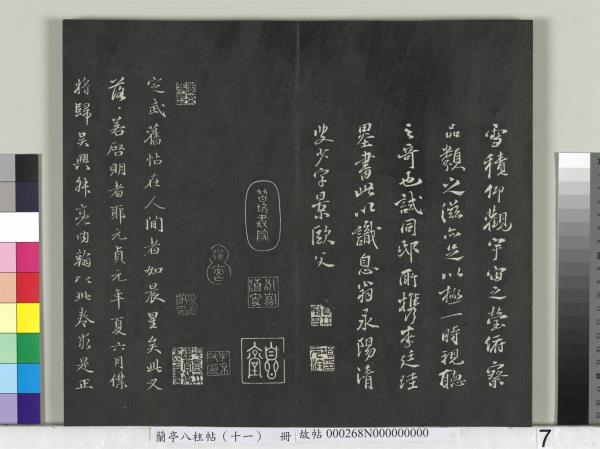 雪積仰觀宇宙之瑩俯察
品類之滋亦足以極一時視聽
之奇也試同邸所攜李廷珪
墨書此以識息翁永陽清
叟少字景歐父
定武舊帖在人間者如晨星矣此又
落落若啓明者耶元貞元年夏六月僕
將歸吳興叔亮內翰以此卷求是正
蘭亭八柱帖(十一) 冊
故帖 000268N000000000
7